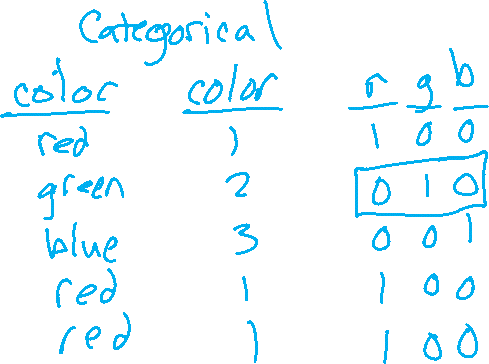 Categorical
color color r g b
red 1 1 0 0
green 2 0 1 0
blue 3 0 0 1
red 1 1 0 0
red 1 1 0 0